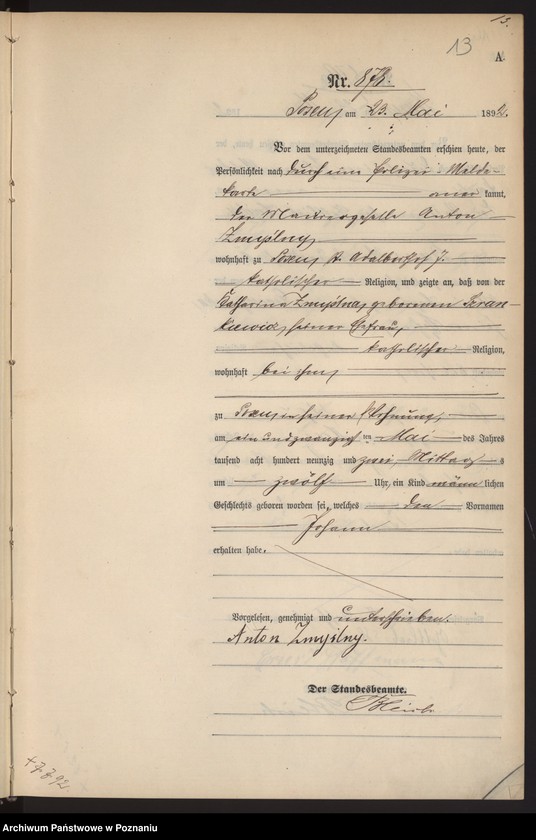 13.
13
A.
Nr. 873.
Posen, am 23. Mai 1892.
Vor dem unterzeichneten Standesbeamten erschien heute, der
Persönlichkeit nach durch eine Polizei-Melde-
karte aner kannt,
der Maurergeselle Anton
Zmyślny
wohnhaft zu Posen, St. Adalberthof 7.
katholischer Religion, und zeigte an, daß von der
Catharina Zmyślna, geborenen Foran-
kiewicz, seiner Ehefrau,
katholischer Religion,
wohnhaft bei ihm,
zu Posen in seiner Wohnung,
am ein und zwanzigsten Mai des Jahres
tausend acht hundert neunzig und zwei, Mittags
um zwölf Uhr, ein Kind männ lichen
Geschlechts geboren worden sei, welches den Vornamen
Johann
erhalten habe.
Vorgelesen, genehmigt und unterschrieben.
Anton Zmyślny.
Der Standesbeamte.
+ 7.7.92
Archiwum Państwowe w Poznaniu